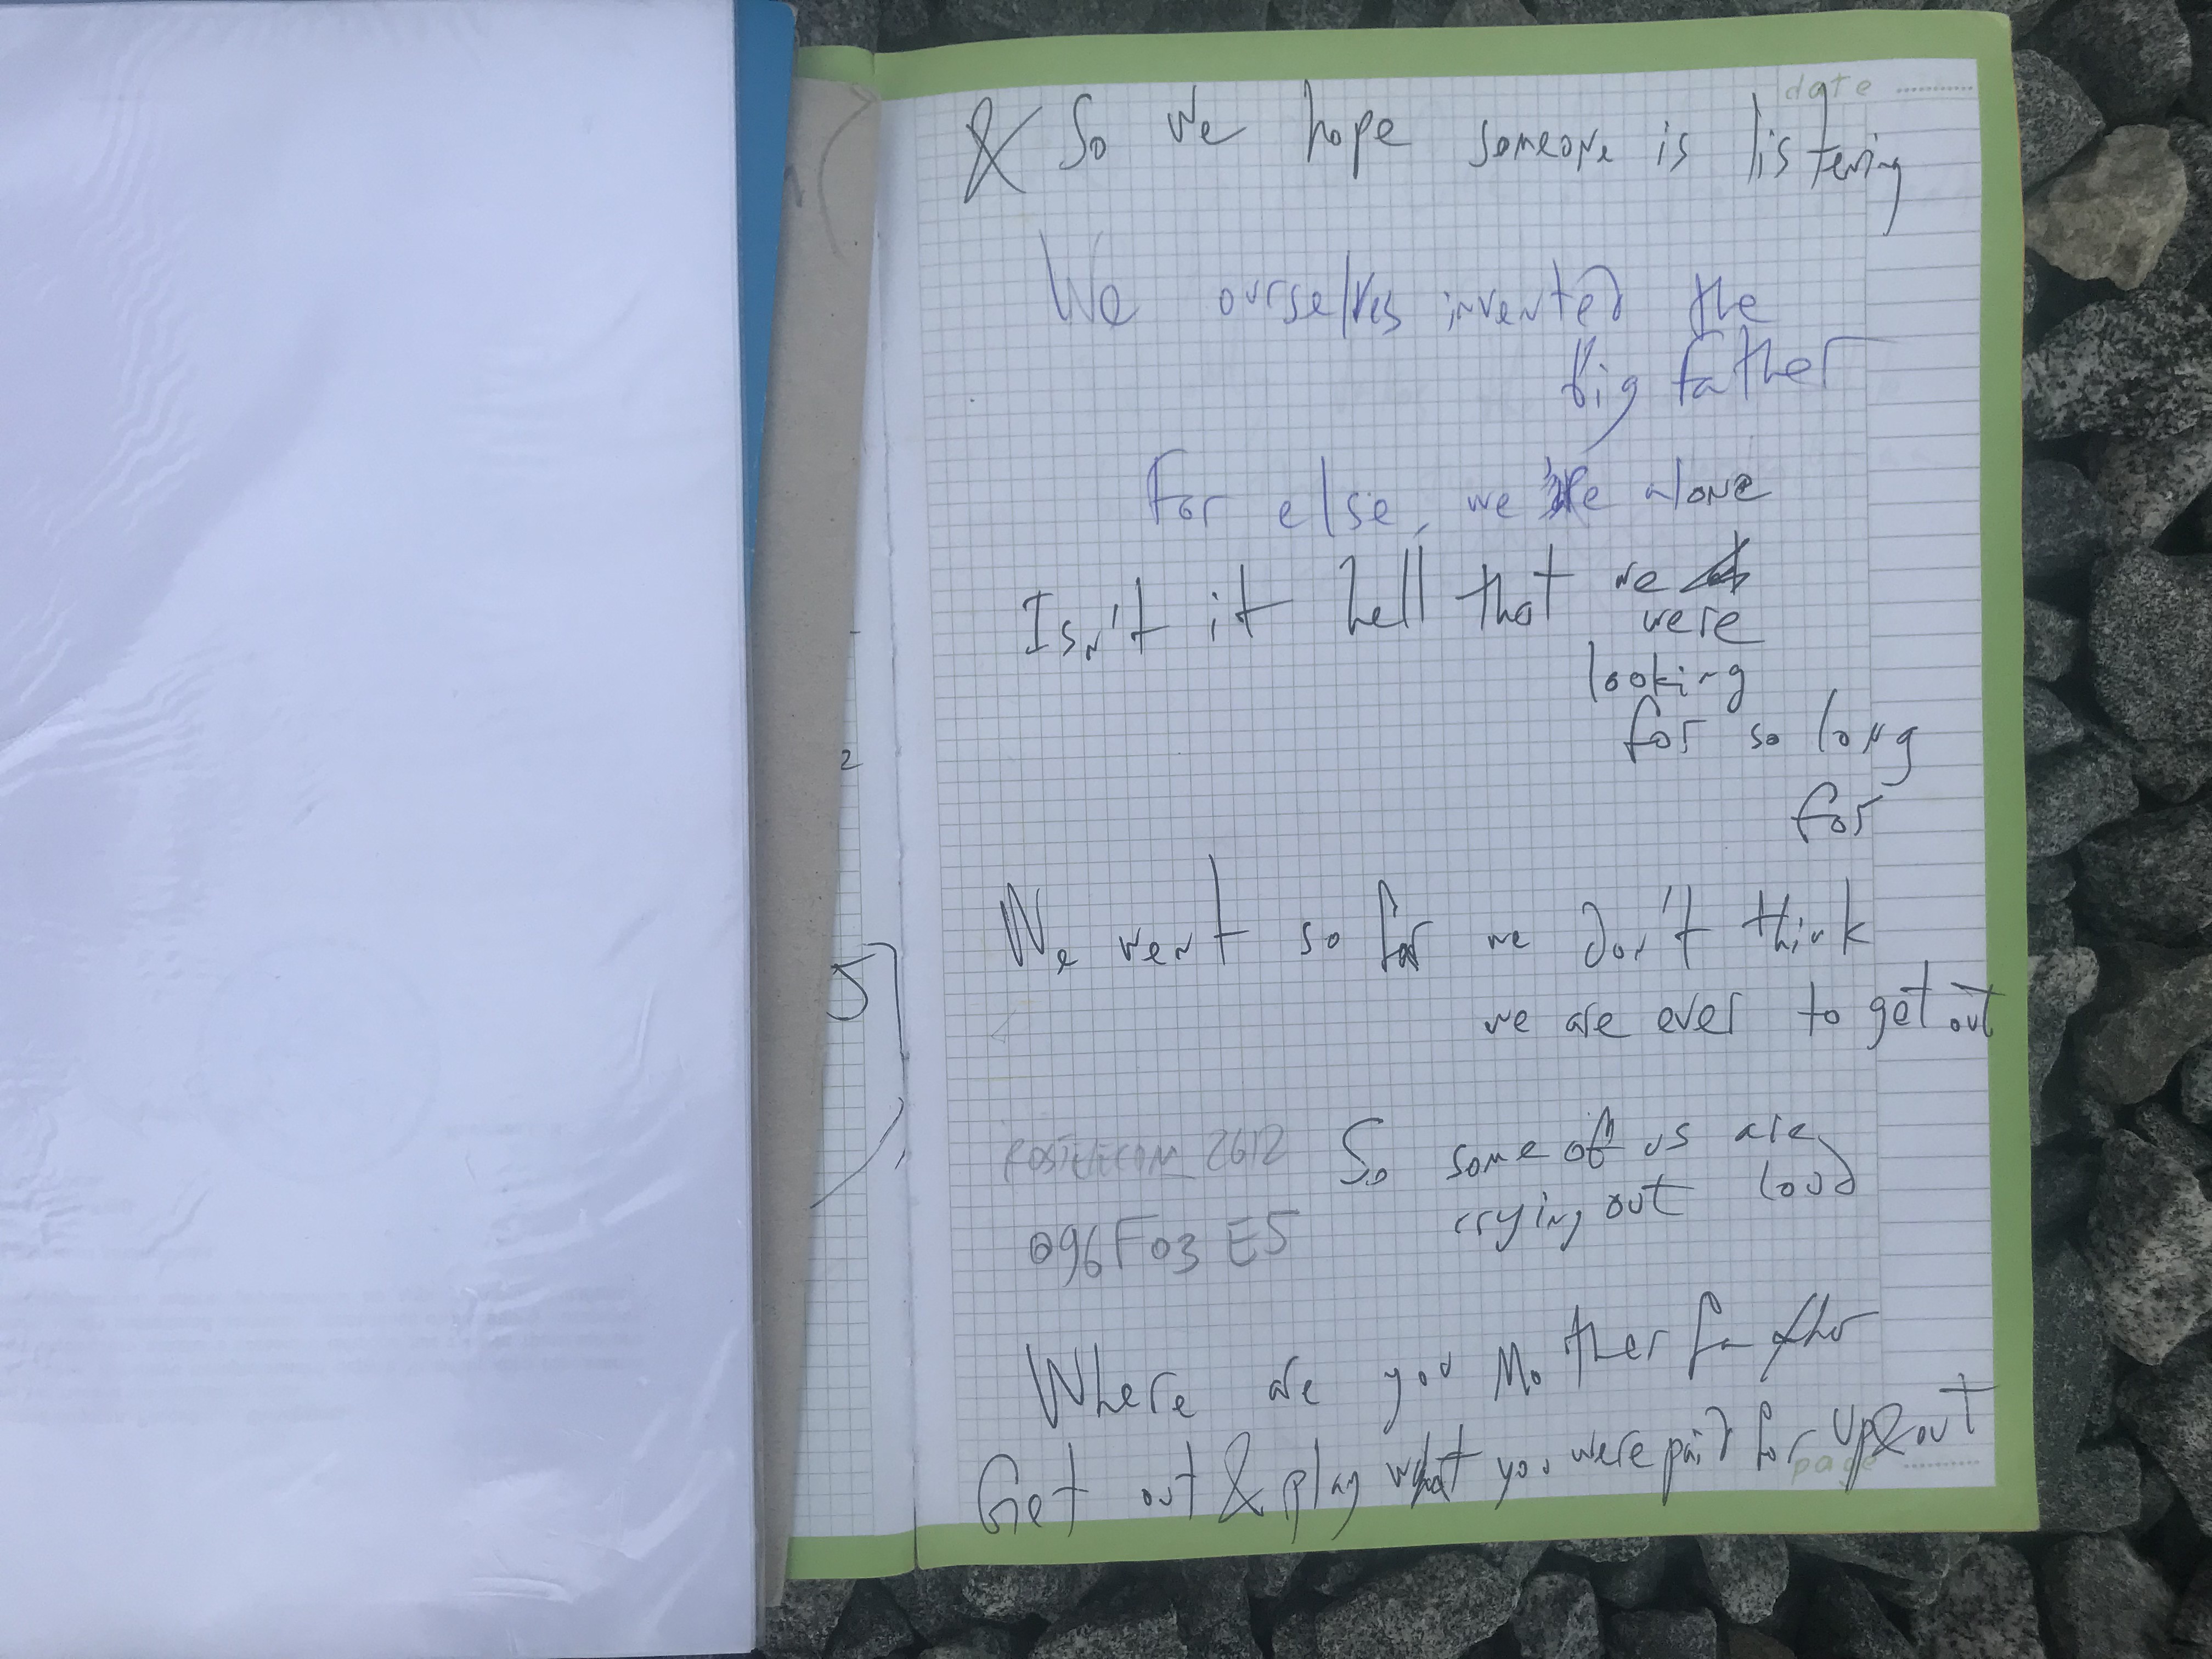 date
& So we hope someone is listening
We ourselves invented the
big father
For else, we're alone
Isn't it hell that we
were
looking
for so long
for
We went so far we don't think
we are ever to get out
ROSTELECOM_2612 So some of us are
crying out loud
096F03E5
Where are you Mother father
Get out & play what you were paid for up&out
page
2